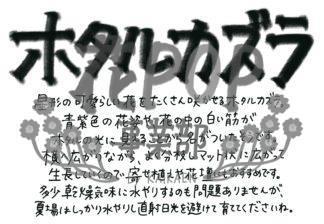 ホタルカズラ
花POP
事業部
星形の可愛らしい花をたくさん咲かせるホタルカズラ。
青紫色の花姿や花の中の白い筋が
ホタルの光に見えることから名がついたそうです。
横へ広がりながら、よく分枝しマット状に広がって
生長していくので寄せ植えや花壇にもおすすめです。
多少乾燥気味に水やりするのも問題ありませんが
夏場はしっかり水やりし直射日光を避けて育ててくださいね。